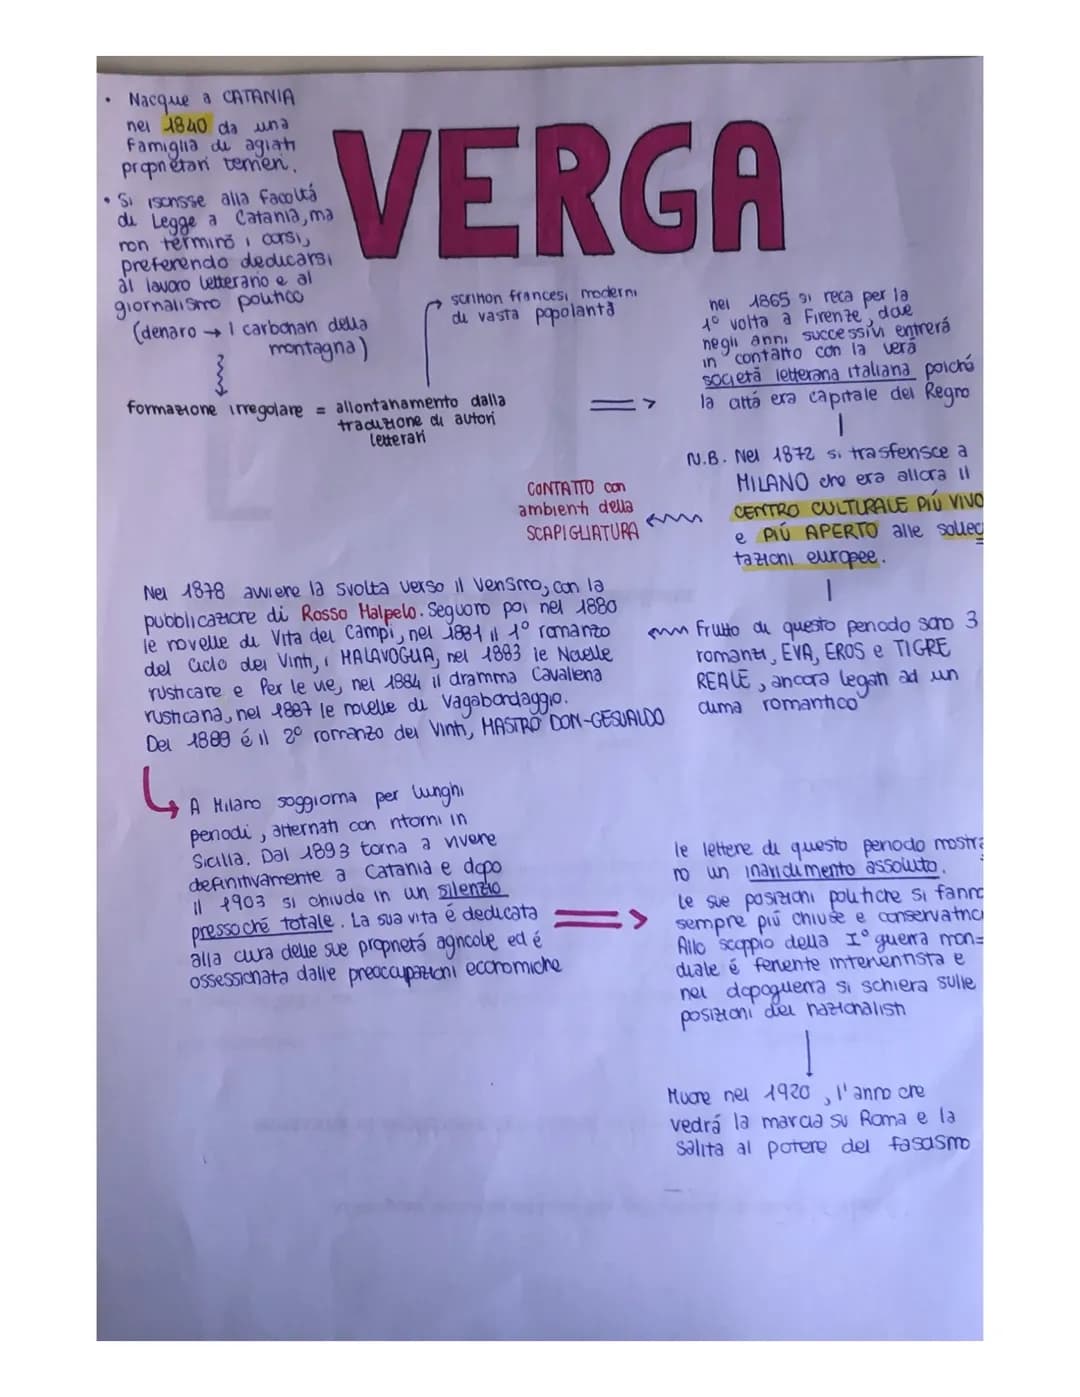 VERGA
• Nacque a CATANIA
nel 1840 da una
famiglia di agiati
proprietari terrieri.
• Si iscrisse alla facoltá
di Legge a Catania, ma
non terminó i corsi,
preferendo dedicarsi
al lavoro letterario e al
giornalismo politico
(denaro → I carbonari della
montagna)
scrittori francesi moderni
di vasta popolaritá
formazione irregolare = allontanamento dalla
tradizione di autori
letterari
nel 1865 si reca per la
1° volta a Firenze, dove
negli anni successivi entrerá
in contatto con la vera
societá letteraria italiana poiché
la cittá era capitale del Regno
N.B. Nel 1872 si trasferisce a
MILANO che era allora il
CENTRO CULTURALE PIÚ VIVO
e PIÚ APERTO alle sollec
tazioni europee.
CONTATTO con
ambienti della
SCAPIGLIATURA
Frutto di questo periodo sono 3
romanzi, EVA, EROS e TIGRE
REALE, ancora legati ad un
clima romantico
Nel 1878 avviene la svolta verso il Verismo, con la
pubblicazione di Rosso Malpelo. Seguono poi nel 1880
le novelle di Vita dei Campi, nel 1881 il 1° romanzo
del Ciclo dei Vinti, i MALAVOGLIA, nel 1883 le Novelle
rusticane e Per le vie, nel 1884 il dramma Cavalleria
rusticana, nel 1887 le novelle di Vagabondaggio.
Del 1889 é il 2° romanzo dei Vinti, MASTRO DON-GESUALDO
A Milano soggiorna per lunghi
periodi, alternati con ritorni in
Sicilia. Dal 1893 torna a vivere
definitivamente a Catania e dopo
il 1903 si chiude in un silenzio
pressoché totale. La sua vita é dedicata
alla cura delle sue proprietá agricole ed é
ossessionata dalle preoccupazioni economiche
le lettere di questo periodo mostra
no un inaridimento assoluto.
Le sue posizioni politiche si fanno
sempre piú chiuse e conservatrici
Allo scoppio della I° guerra mon=
diale é fervente interventista e
nel dopoguerra si schiera sulle
posizioni dei nazionalisti
Muore nel 1920, l'anno che
vedrá la marcia su Roma e la
salita al potere del fascismo